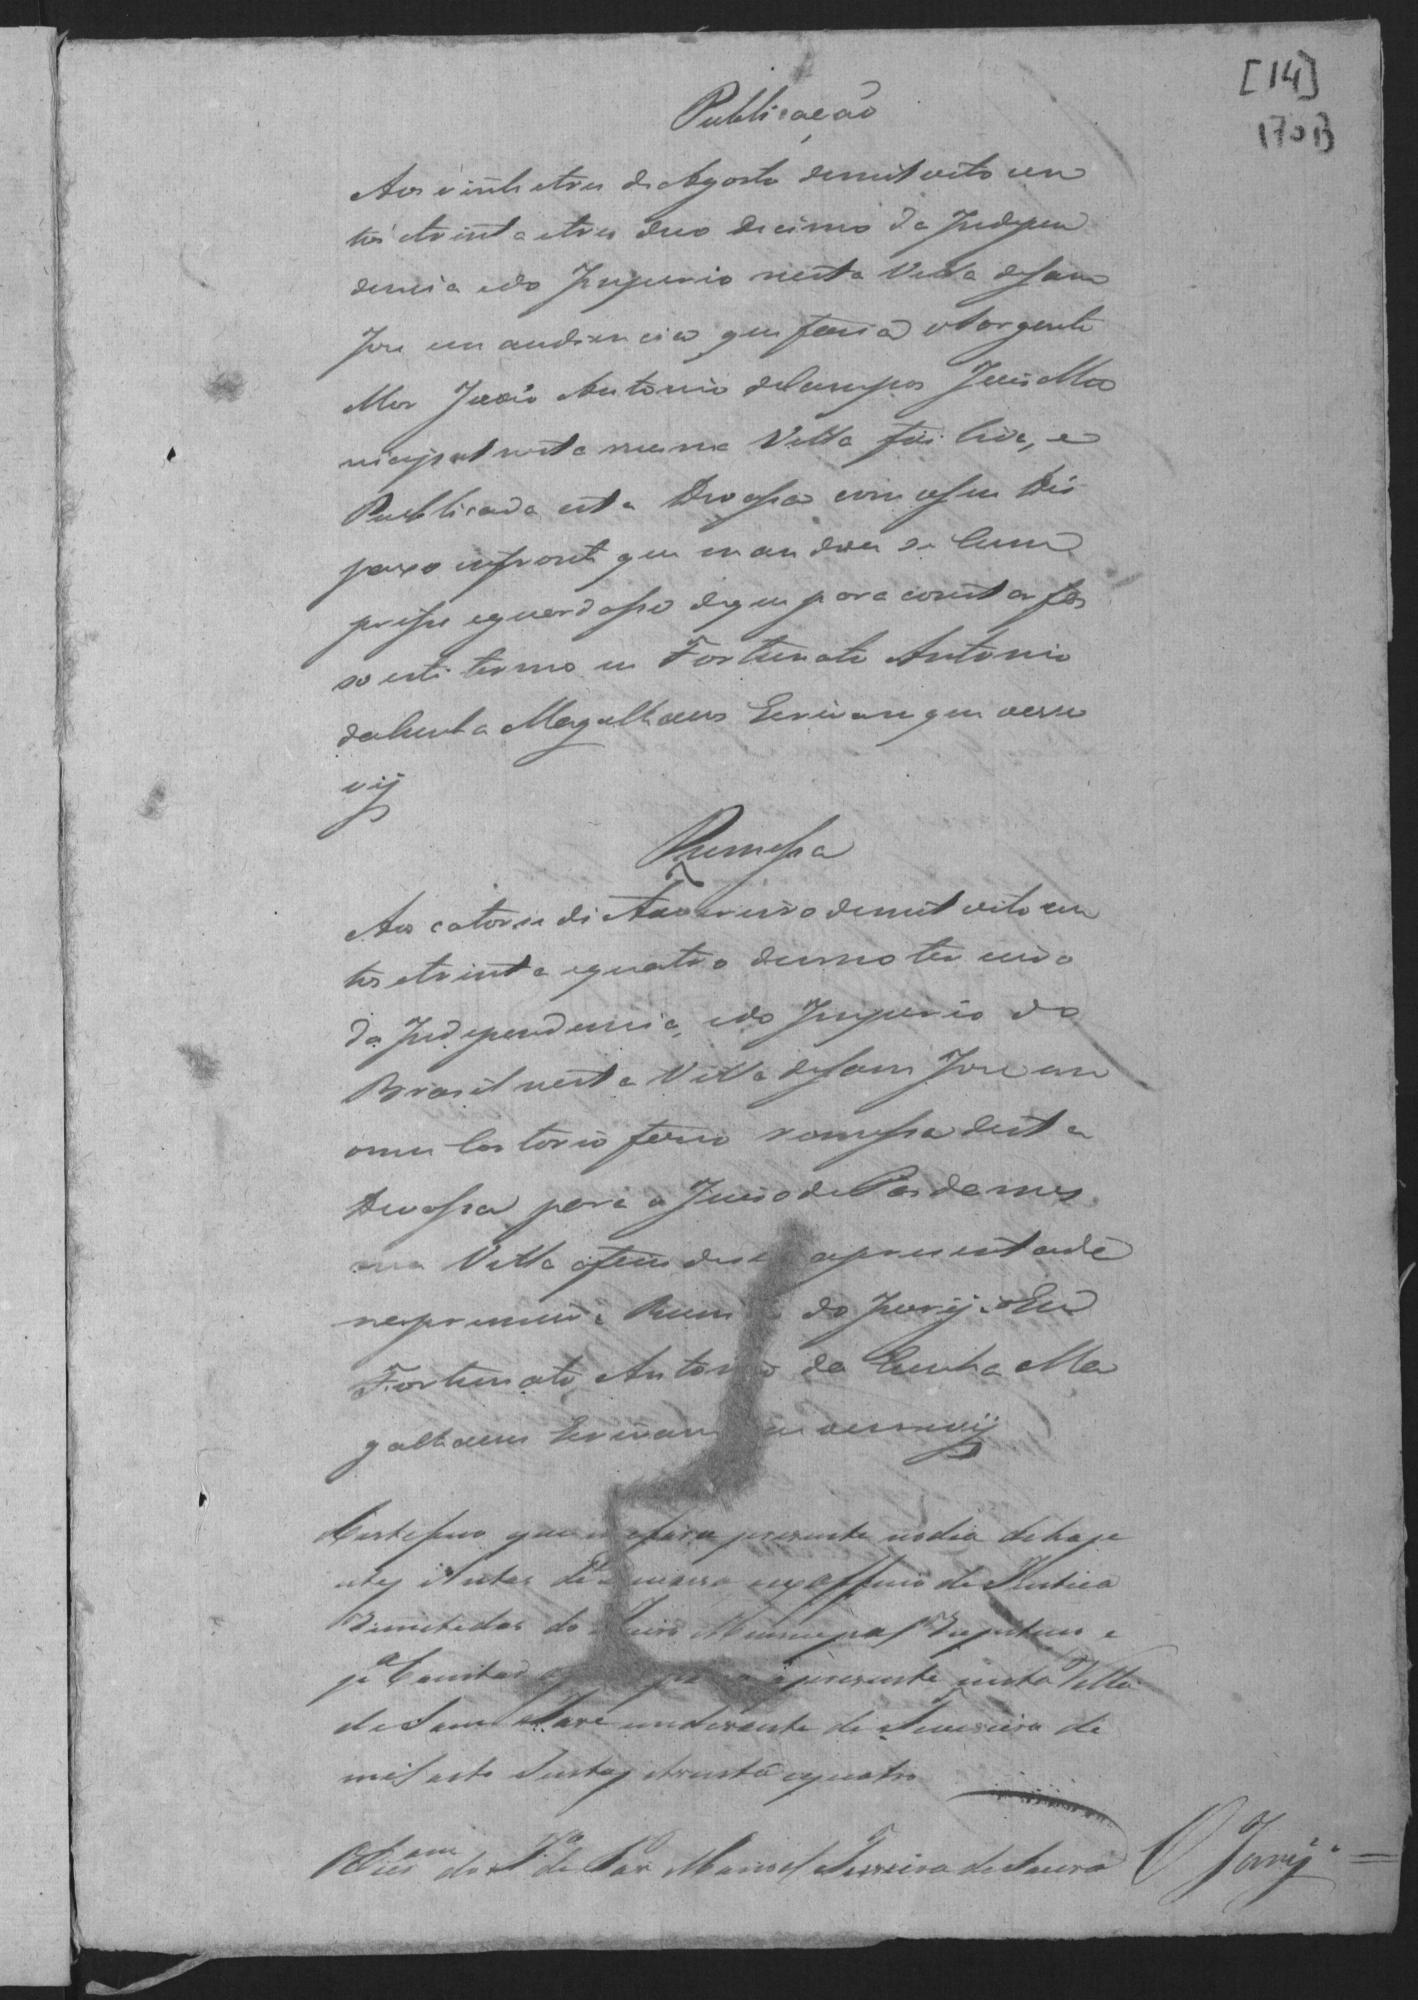 [14]
170B
Publicação
Aos vinte etres de Agosto demil oito cen
tos etrinta etres duo decimo da Indepen
dencia edo Imperio nesta Villa deSam
Jose em audiencia que fasia oSargento
Mor João Antonio deCampos Juis Mu
nicipal nesta mesma Villa foi lida, e
Publicada esta Devassa com oseu Des
paxo infronte que mandou se Cum
prisse eguardasse deque para constar fes
so este termo eu Fortunato Antonio
daCunha Magalhaens Escrivam que oescre
vij
Remessa
Aos catorse de Fevereiro demil oito cen
tos etrinta equatro decimo terceiro
da Independencia, edo Imperio do
Brasil nesta Villa deSam Jose em
omeu Cartorio faço remessa desta
Devassa para o Juiso de Pas da mes
ma Villa afim de ser apresentada
naprimeira Reuni do Jury Eu
Fortunato Antonio da Cunha Ma
galhaens Escrivam que oescrevij
Certefico que presente nodia dehoje
de Justica
Remetidas do Juiso Municipal
pª Constar presente nesta Villa
de Sam Jose de Fevereiro de
mil oito Sentos etrinta equatro
Escram do Jº de Pax Manoel Ferreira de Souza
O Jury =